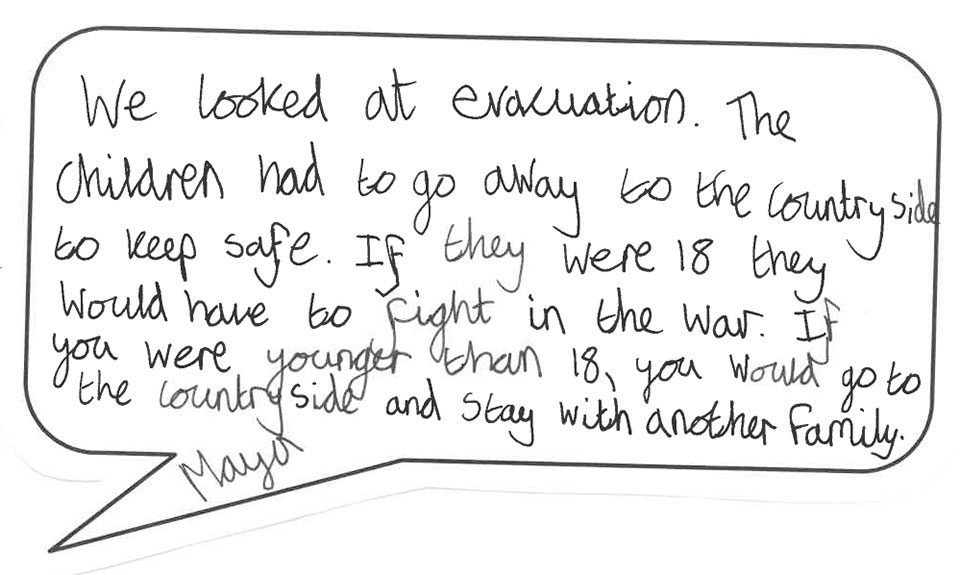 We looked at evacuation. The
children had to go away to the countryside
to keep safe. If they were 18 they
would have to fight in the war. If
you were younger than 18, you would go to
the countryside and stay with another family.
Maya